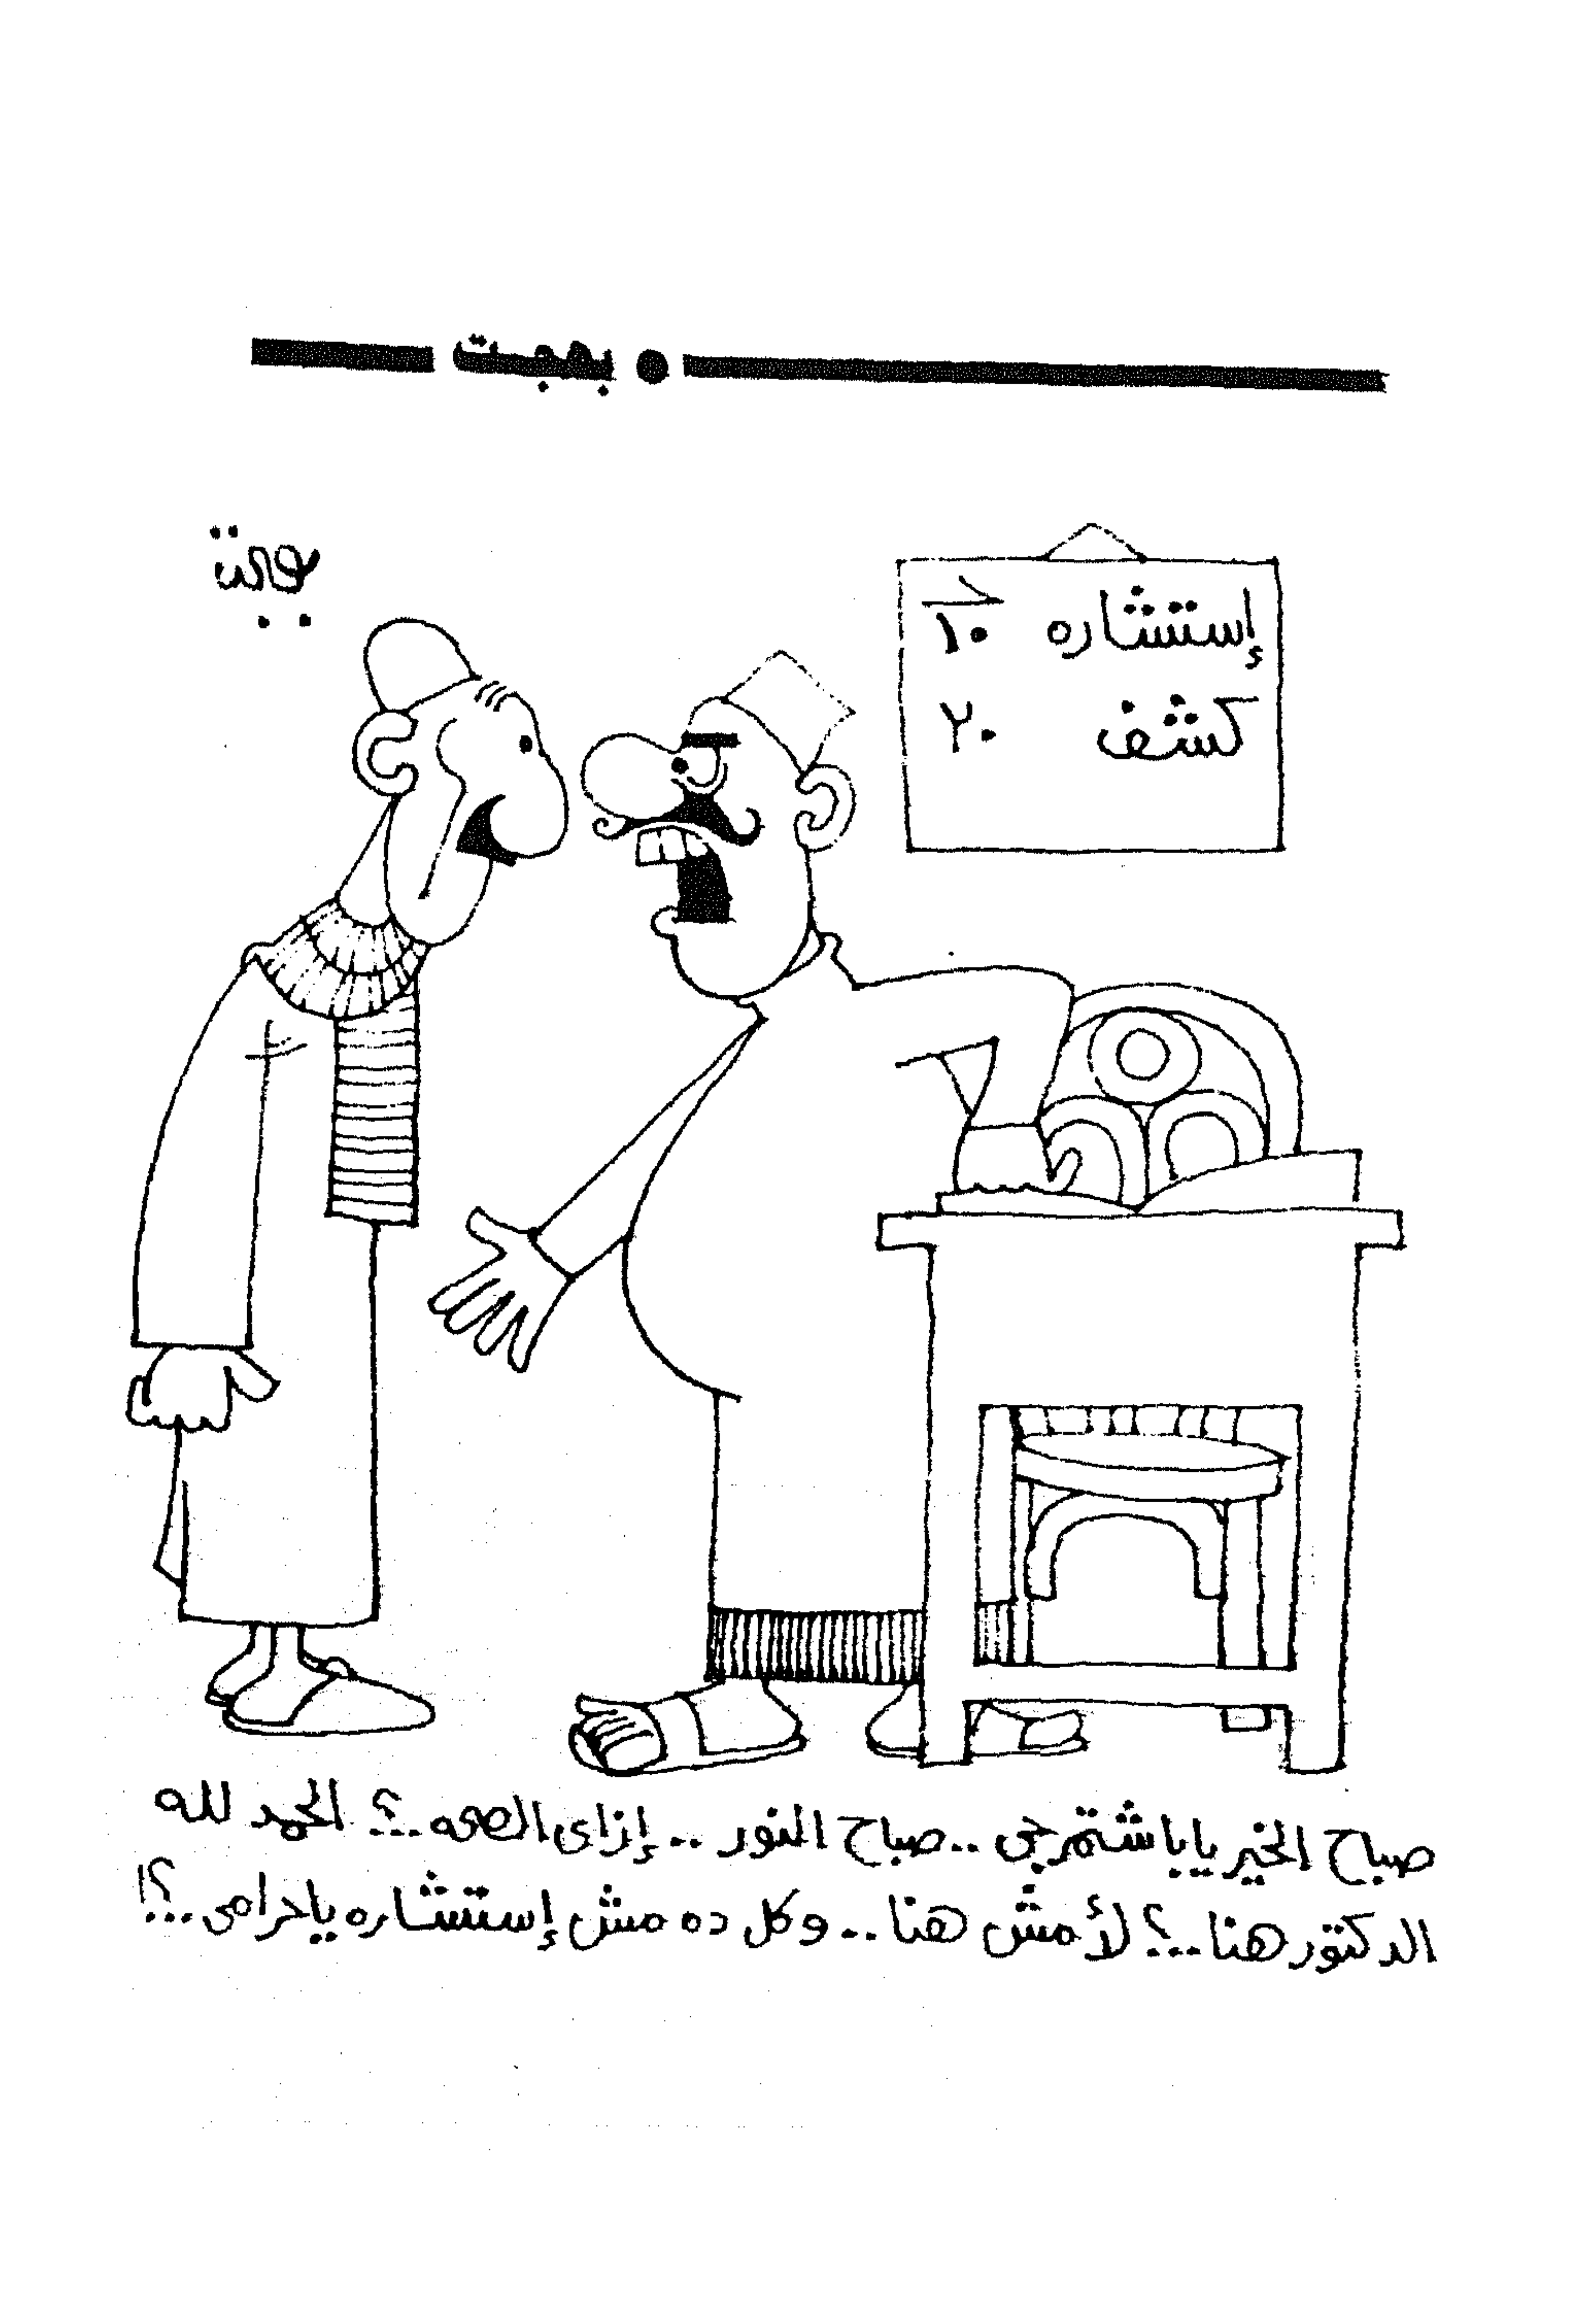 بهجت
بهجت
إستشاره ١٠
كشف ٢٠
صباح الخير ياباشتمرجى ..صباح النور .. إزاى الصحه ..؟ الحمد لله
الدكتور هنا ..؟ لأ مش هنا .. وكل ده مش إستشاره ياحرامى ..؟!